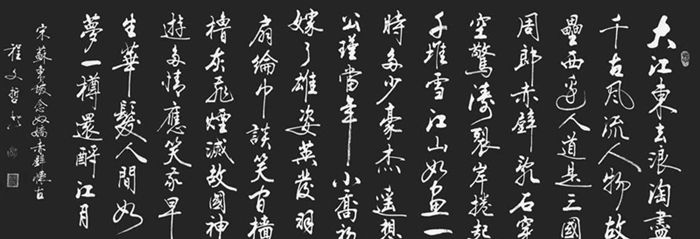 大江東去浪淘盡
千古風流人物故
壘西邊人道是三國
周郎赤壁亂石穿
空驚濤裂岸捲起
千堆雪江山如畫一
時多少豪杰遙想
公瑾當年小喬初
嫁了雄姿英發羽
扇綸巾談笑間檣
櫓灰飛煙滅故國神
遊多情應笑我早
生華髮人間如
夢一樽還酹江月
宋蘇東坡念奴嬌赤壁懷古
程文哲